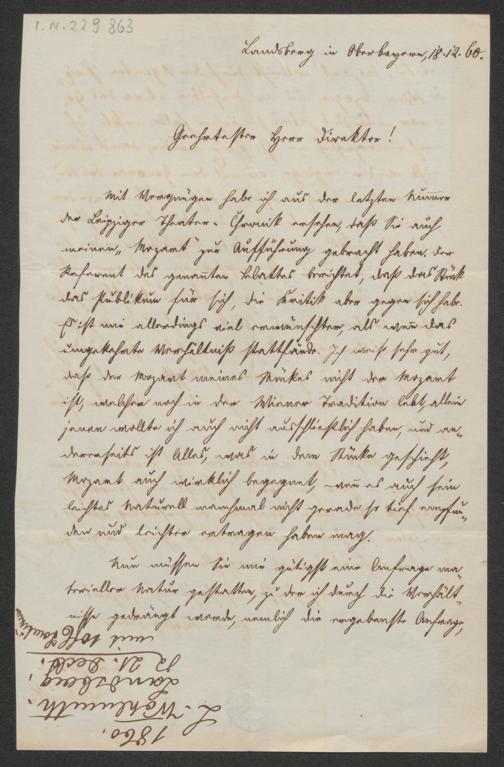 I.N. 229 863
Landsberg in Oberbayern, 18.12.60.
Geehrtester Herr Direktor!
Mit Vergnügen habe ich aus der letzten Nummer
der Leipziger Theater-Chronik ersehen, daß Sie auch
meinen „Mozart" zur Aufführung gebracht haben. Der
Referent des genannten Blattes berichtet, daß das Stück
das Publikum für sich, die Kritik aber gegen sich habe.
Es ist mir allerdings viel erwünschter, als wenn das
umgekehrte Verhältniß stattfände. Ich weiß sehr gut,
daß der Mozart meines Stückes nicht der Mozart
ist, welcher noch in der Wiener Tradition lebt, allein
jenen wollte ich auch nicht ausschließlich haben, und an-
dererseits ist Alles, was in dem Stücke geschieht,
Mozart auch wirklich begegnet, wenn es auch sein
leichtes Naturell manchmal nicht gerade so tief empfun-
den und leichter ertragen haben mag.
Nun müssen Sie mir gütigst eine Anfrage ma-
terieller Natur gestatten, zu der ich durch die Verhält-
nisse gedrängt werde, nemlich die ergebenste Anfrage,
1860.
L. Wohlmuth.
Landsberg,
21. Decb.
mit 10 f